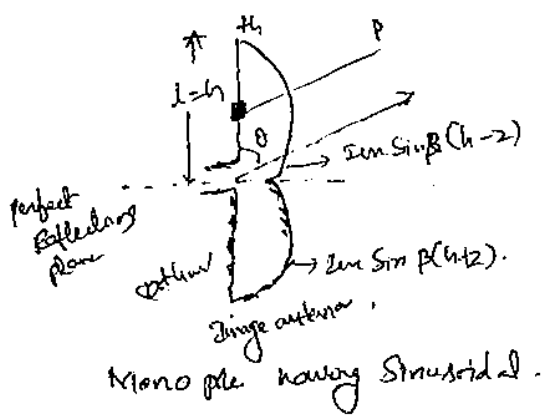 th
P
l=h
θ
Im Sin β(h-z)
perfect
reflecting
plane
Im Sin β(h+z).
Image antenna.
Mono pole having Sinusoidal.